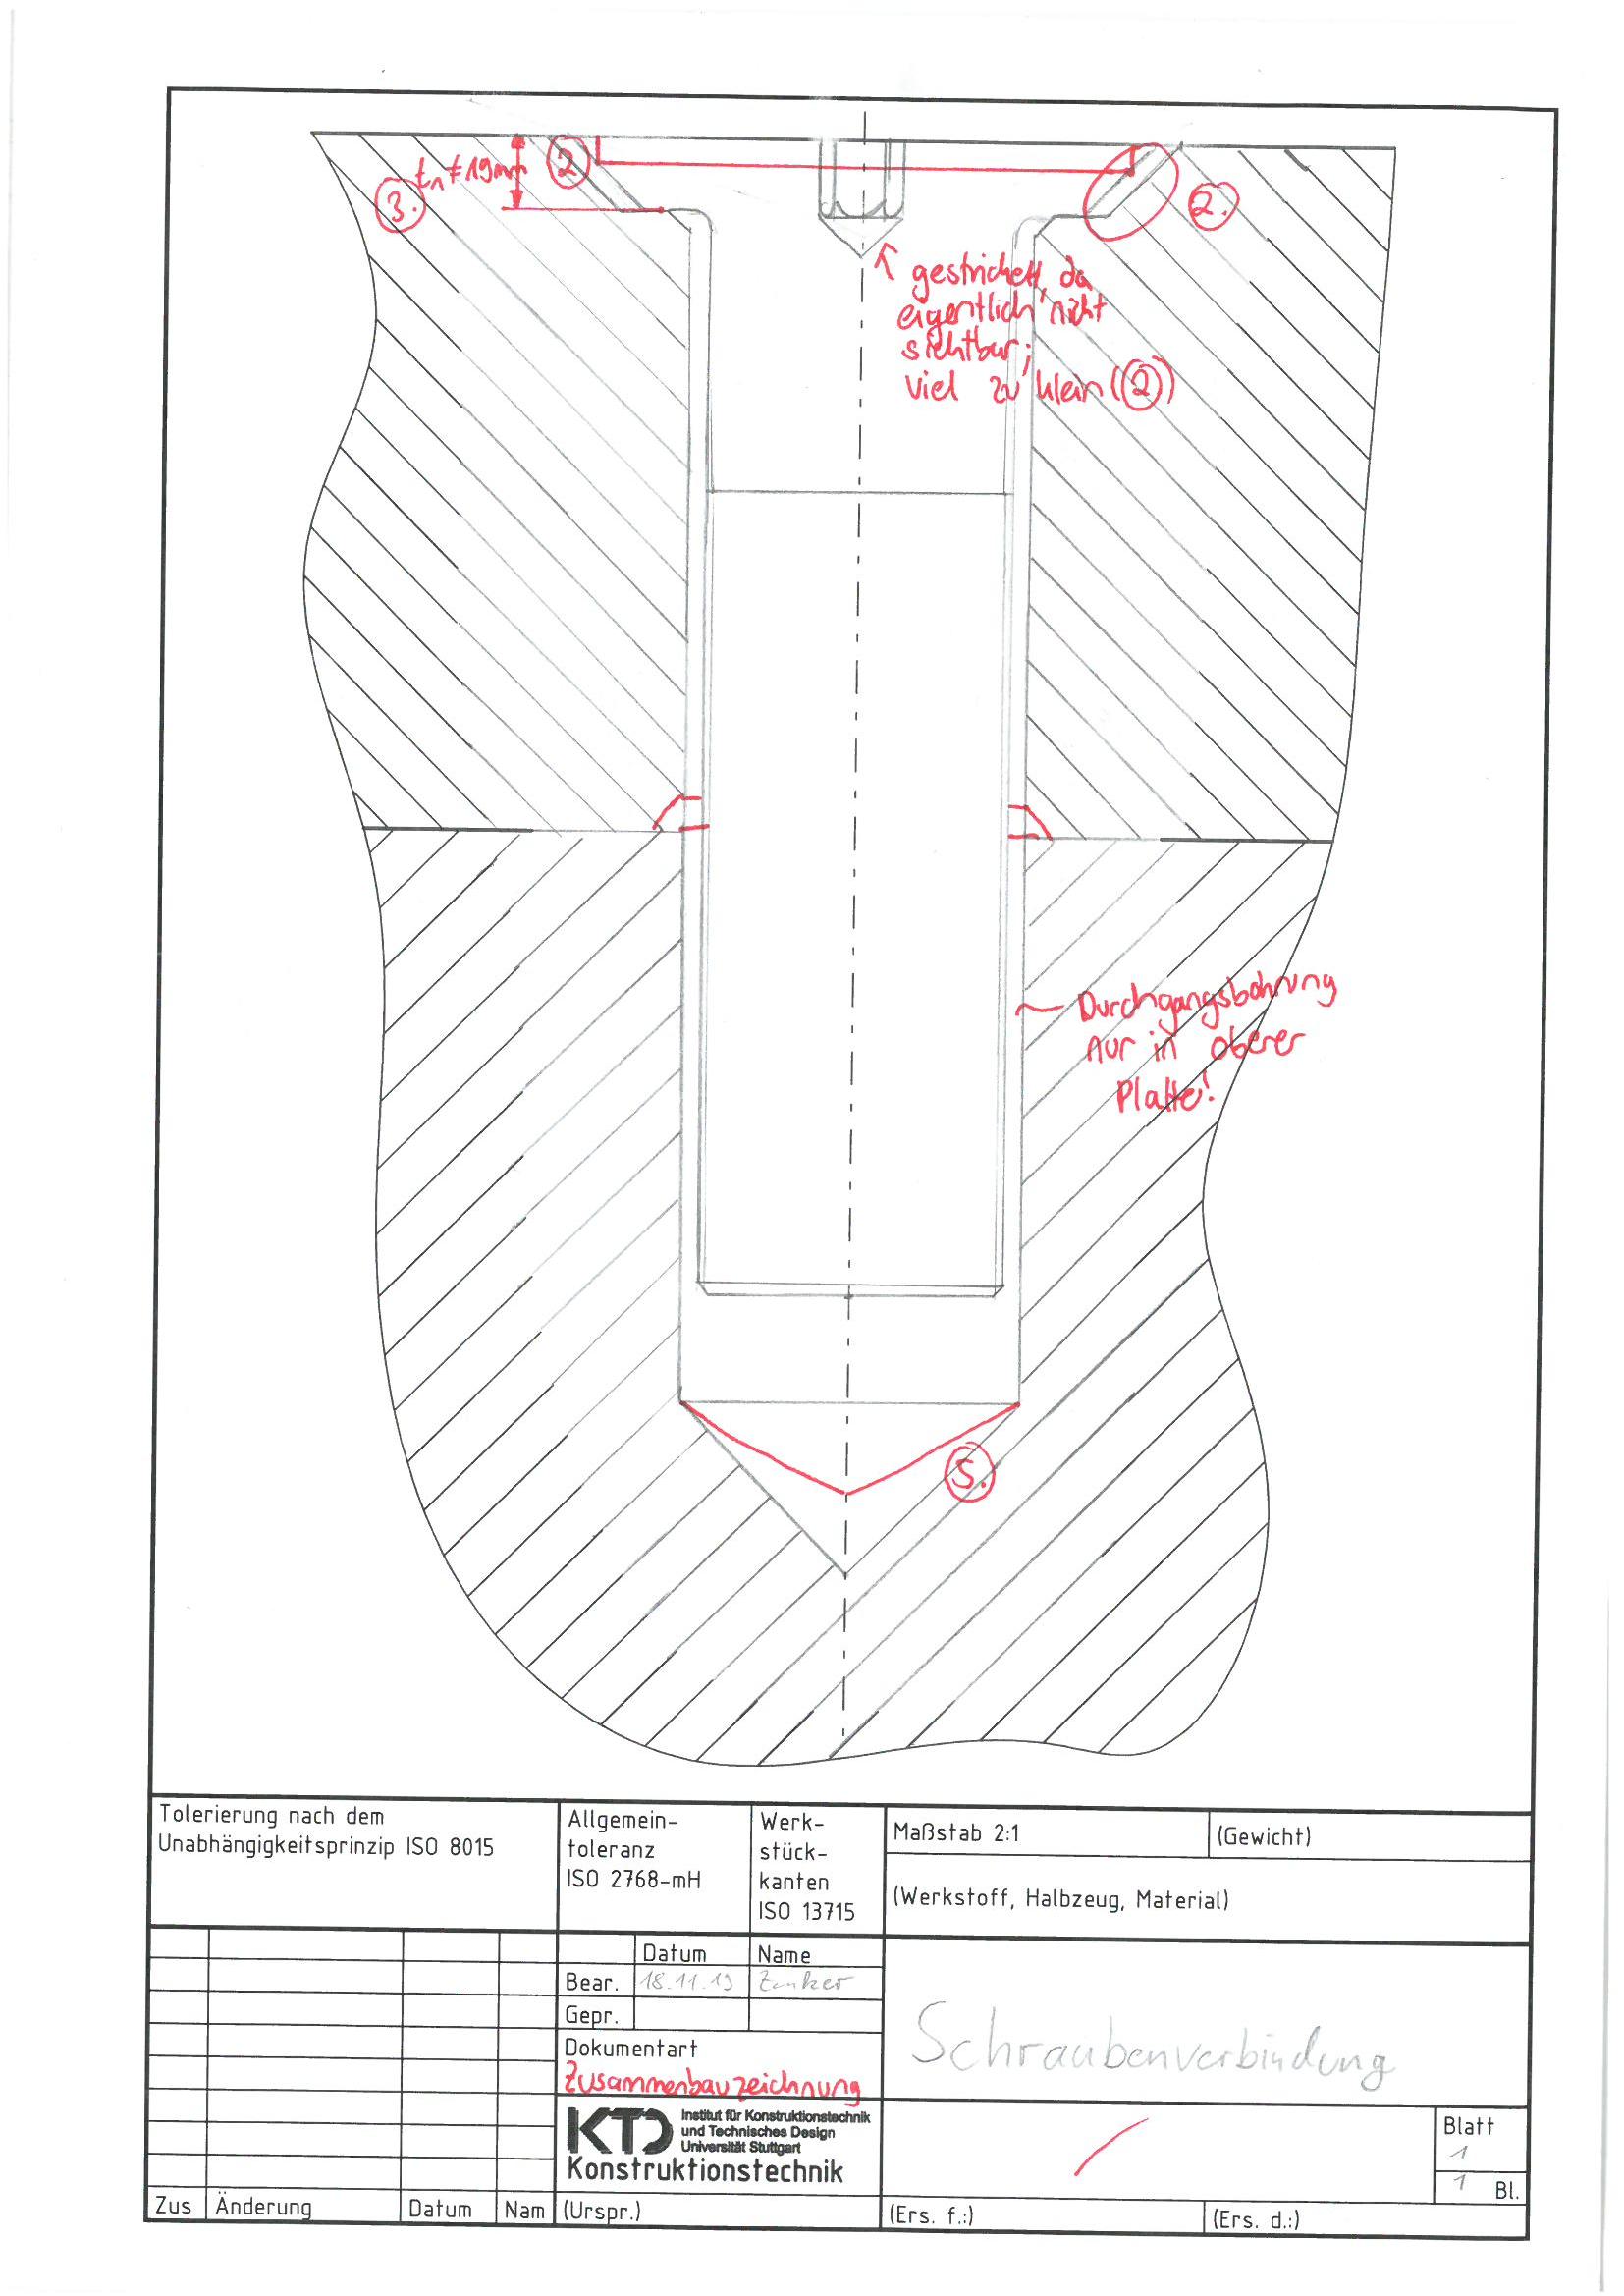 t₁ ≠ 19mm
2
3.
2.
gestrichelt, da
eigentlich nicht
sichtbar;
viel zu klein (2)
Durchgangsbohrung
nur in oberer
Platte!
5.
Tolerierung nach dem
Unabhängigkeitsprinzip ISO 8015
Allgemein-
toleranz
ISO 2768-mH
Werk-
stück-
kanten
ISO 13715
Maßstab 2:1
(Gewicht)
(Werkstoff, Halbzeug, Material)
Datum Name
Bear. 18.11.19 Zenker
Gepr.
Dokumentart
Zusammenbauzeichnung
Schraubenverbindung
KTD Institut für Konstruktionstechnik
und Technisches Design
Universität Stuttgart
Konstruktionstechnik
Blatt
1
1 Bl.
Zus Änderung Datum Nam (Urspr.) (Ers. f.:) (Ers. d.:)